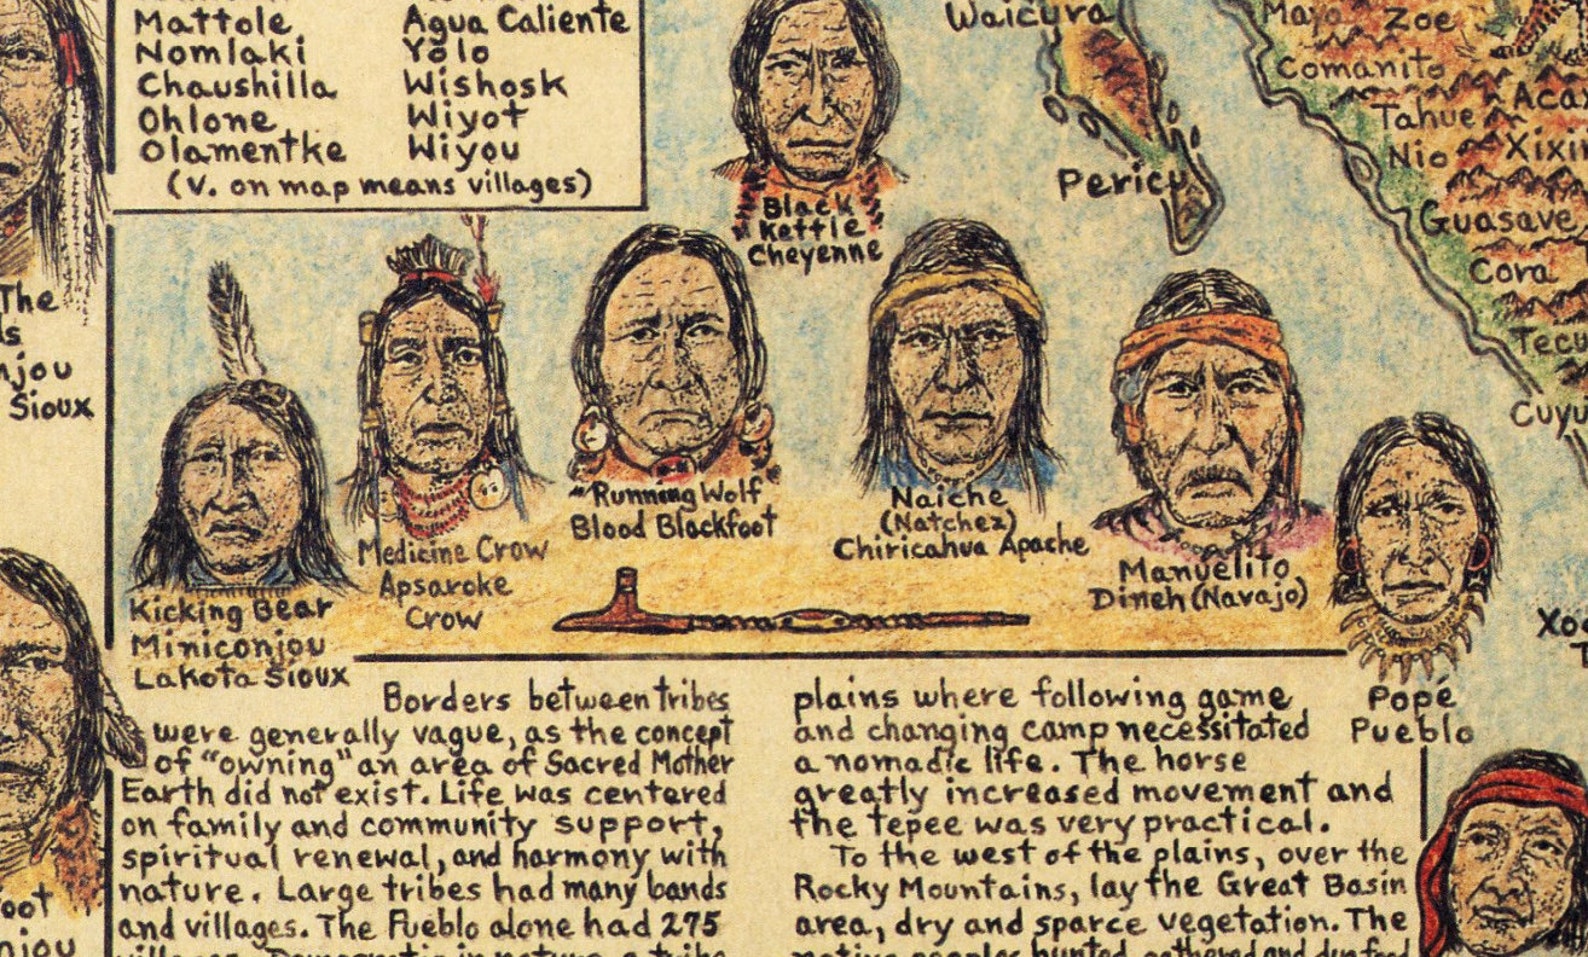 Mattole
Nomlaki
Chaushilla
Ohlone
Olamentke
Agua Caliente
Yolo
Wishosk
Wiyot
Wiyou
(V. on map means villages)
The
Sioux
Black
Kettle
Cheyenne
Waicura
Pericu
Maya Zoe
Comanito
Tahue
Nio
Guasave
Cora
Kicking Bear
Miniconjou
Lakota Sioux
Medicine Crow
Apsaroke
Crow
"Running Wolf"
Blood Blackfoot
Naiche
(Natchez)
Chiricahua Apache
Manuelito
Dineh (Navajo)
Popé
Pueblo
Borders between tribes
were generally vague, as the concept
of "owning" an area of Sacred Mother
Earth did not exist. Life was centered
on family and community support,
spiritual renewal, and harmony with
nature. Large tribes had many bands
and villages. The Pueblo alone had 275
villages. Democratic in nature, a tribe
plains where following game
and changing camp necessitated
a nomadic life. The horse
greatly increased movement and
the tepee was very practical.
To the west of the plains, over the
Rocky Mountains, lay the Great Basin
area, dry and sparce vegetation. The
native peoples hunted, gathered and